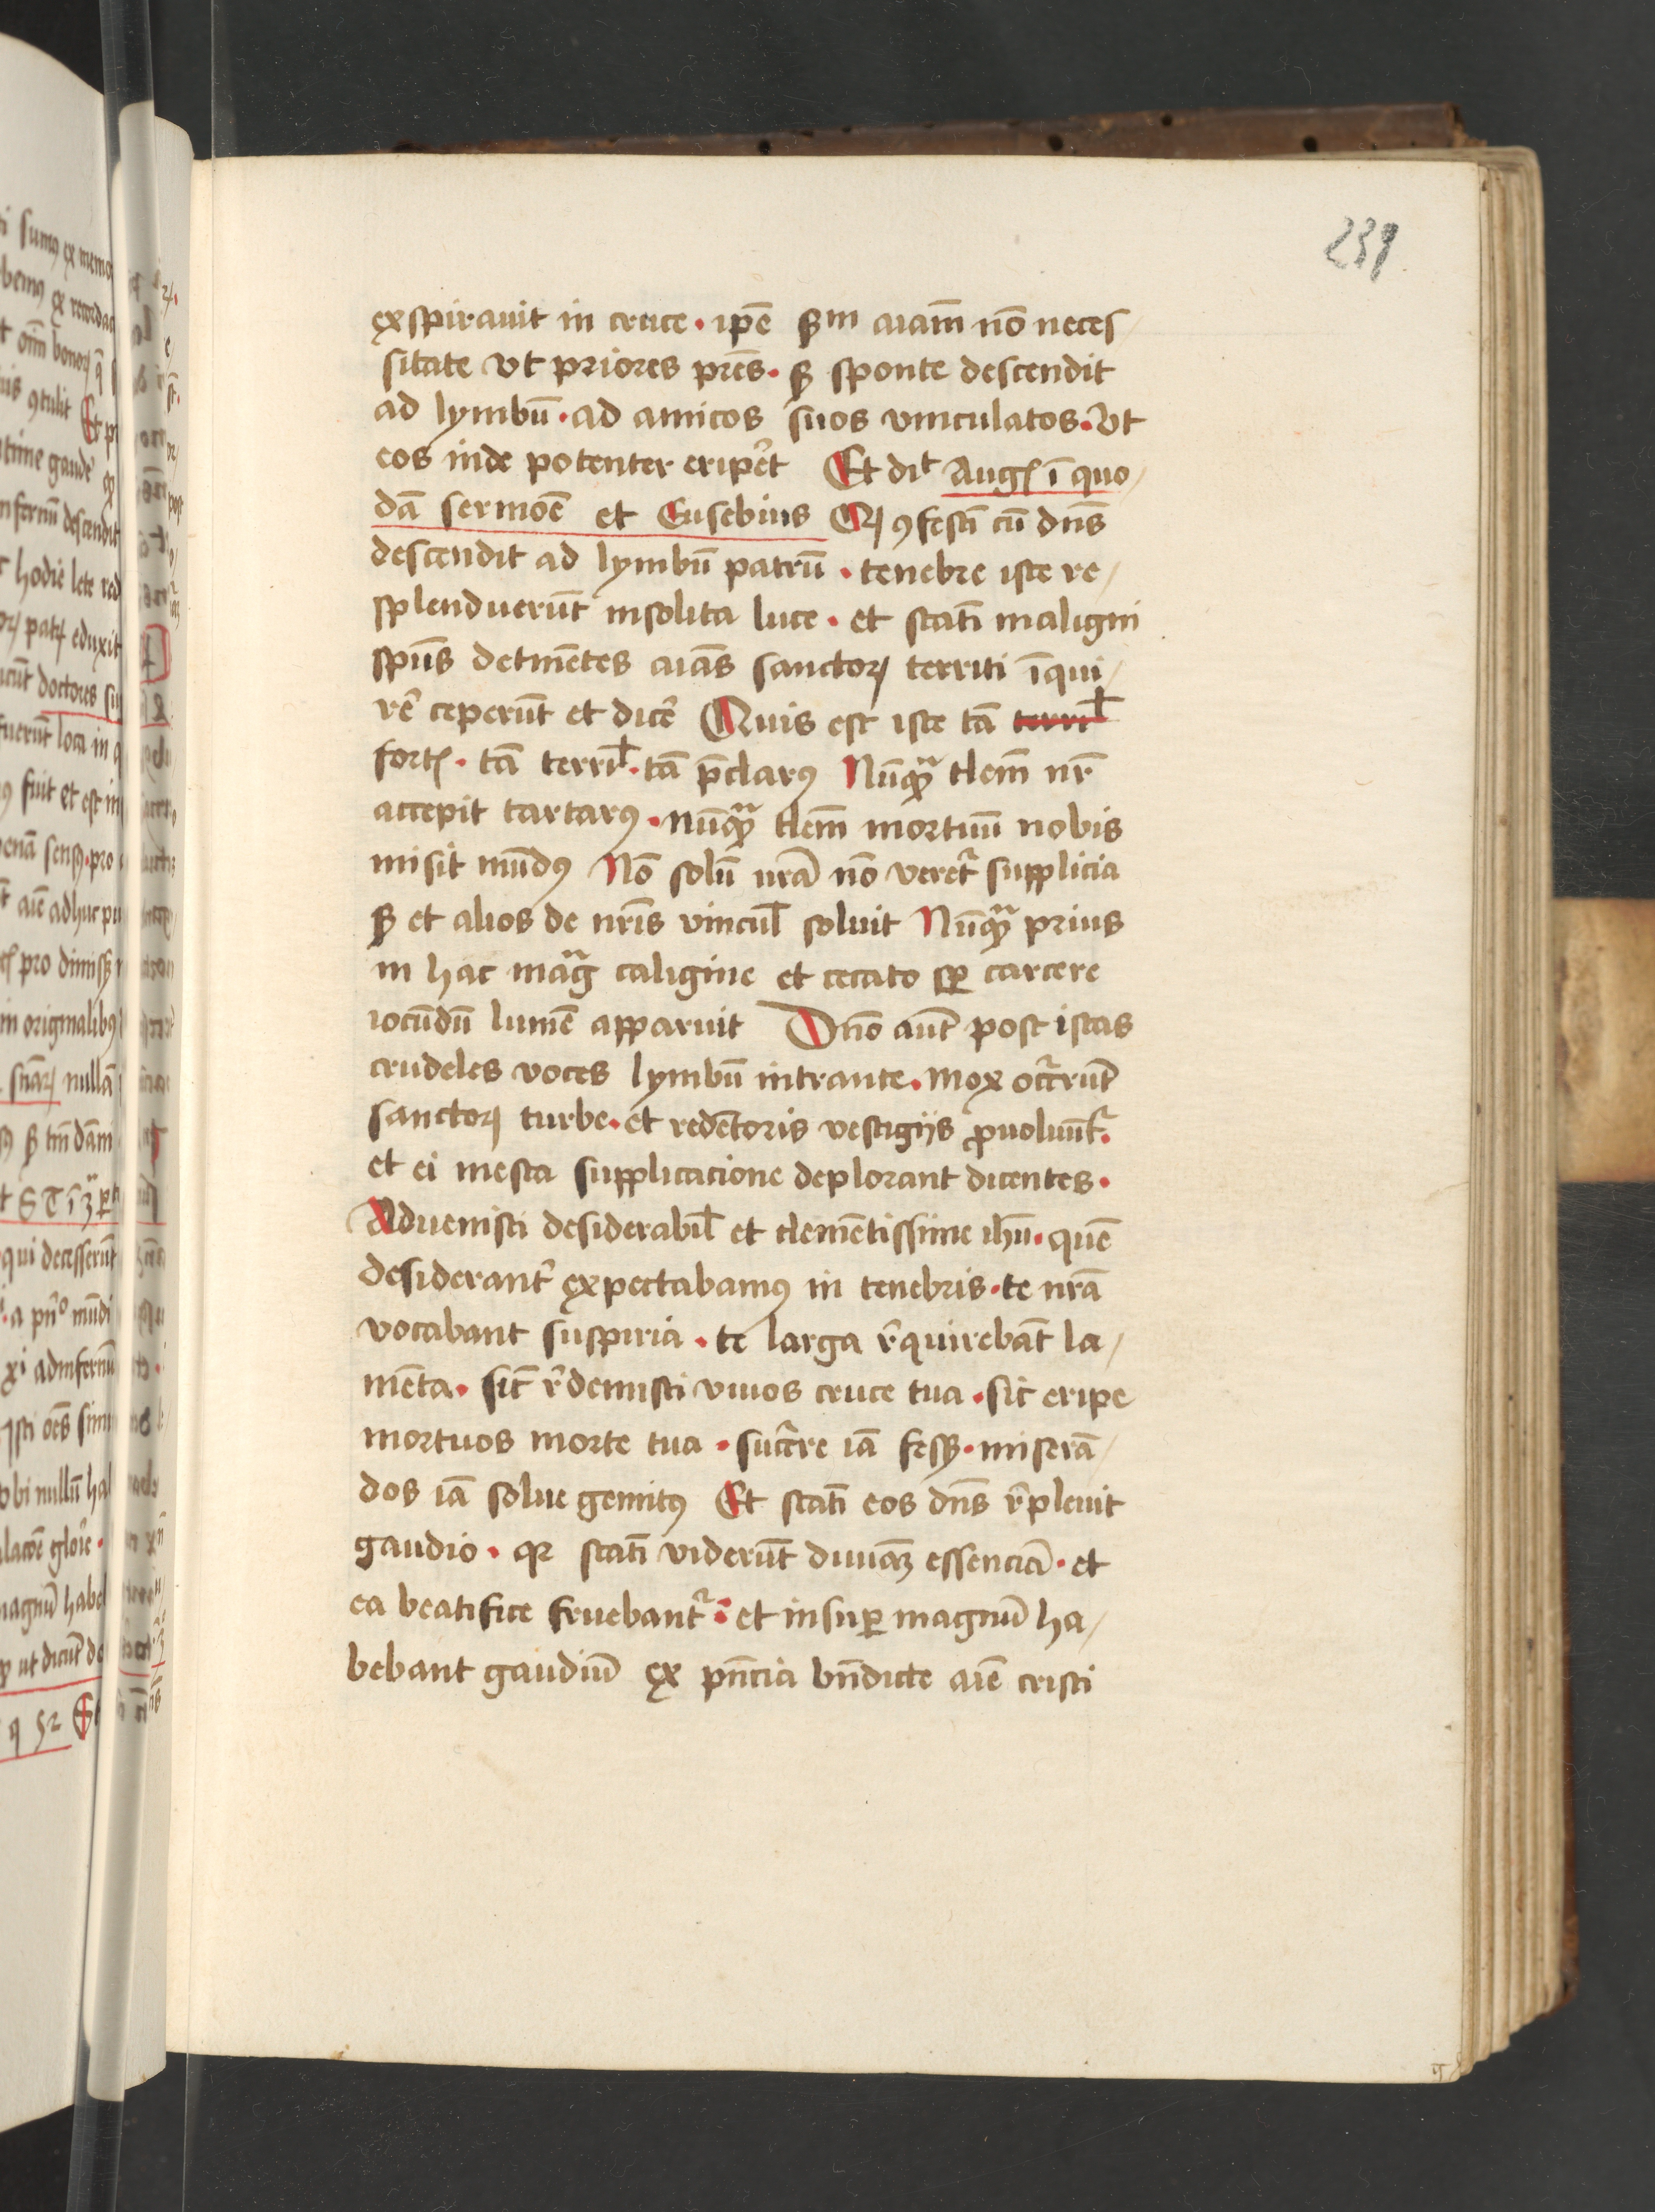 239
exspirauit in cruce · ip̄e sm aiam̄ nō neces/
sitate vt priores pr̄es · sꝫ sponte descendit
ad lymbū · ad amicos suos vinculatos · Vt
eos inde potenter erip̄et Et dit Augꝰ ī quo/
dā sermoē et Eusebius Qꝫ ꝯfestī cū dn̄s
descendit ad lymbū patrū · tenebre iste re/
splenduerūt insolita luce · et statī maligni
spūs detinētes aiās sanctoꝝ territi īqui/
rē ceperūt et dicē Quis est iste tā terril̄
fortꝭ · tā terril̄ · tā p̄clarꝰ Nūqꝫ tlem̄ nr̄
accepit tartarꝰ · nūqꝫ tlem̄ mortuū nobis
misit mūdꝰ Nō solū nrā nō veretᷣ supplicia
sꝫ et alios de nr̄is vincul̄ soluit Nūqꝫ prius
in hac mag caligine et cecato sꝑ carcere
iocūdū lumē apparuit Dn̄o aūt post istas
crudeles voces lymbū intrante · mox occ̄rrūt
sanctoꝝ turbe · et redētoris vestigijs ꝓuoluūtᷣ ·
et ei mesta supplicacione deplorant dicentes ·
Aduenisti desiderabil̄ et clemētissime ihū · quē
desiderantᷣ expectabamꝰ in tenebris · te nrā
vocabant suspiria · te larga r̄quirebāt la/
mēta · sic r̄demisti viuos cruce tua · sic eripe
mortuos morte tua · succ̄re iā fessꝫ · miserā/
dos iā solue gemitꝰ Et statī eos dn̄s r̄pleuit
gaudio · qꝛ statī viderūt diuinaꝫ essenciā · et
ea beatifice fruebantᷣ · et insuꝑ magnū ha/
bebant gaudiū ex pn̄cia bn̄dicte aīe cristi